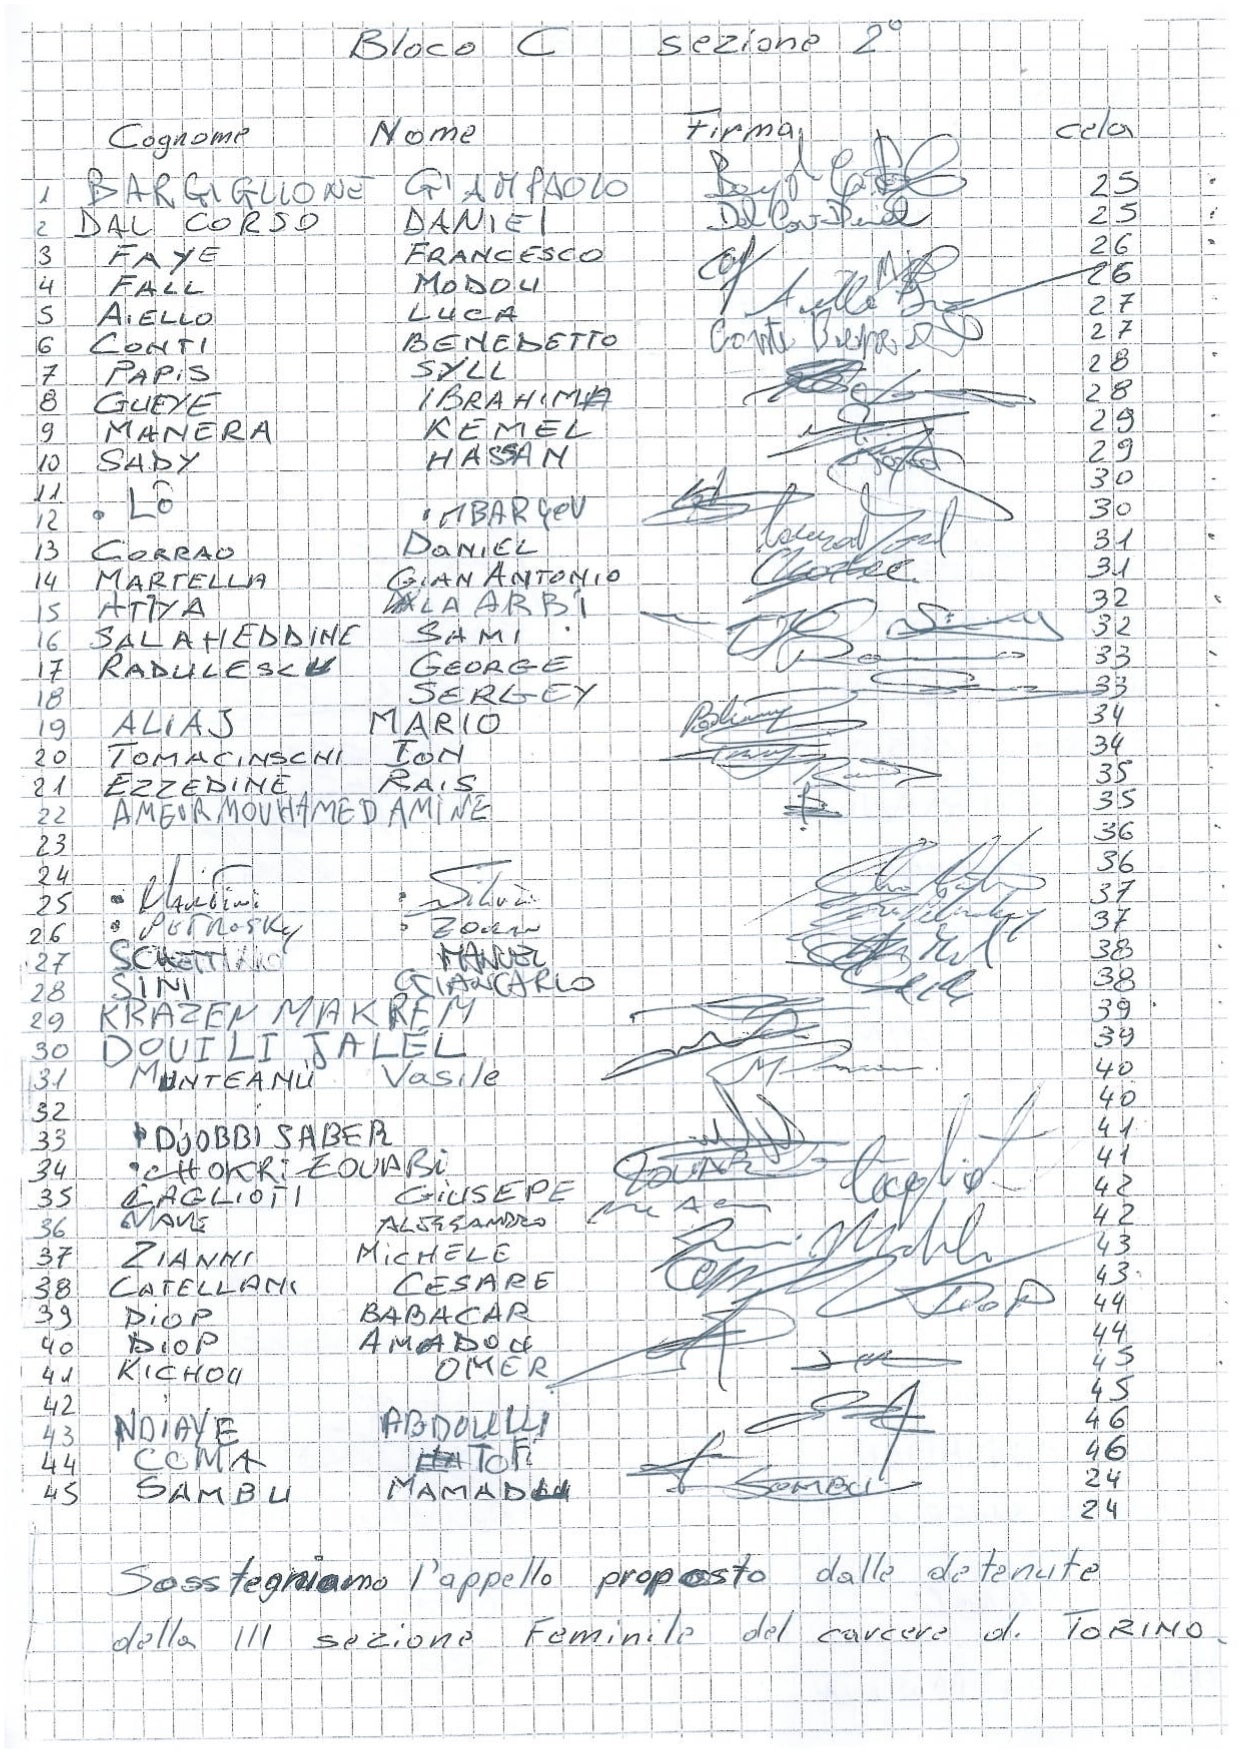 Bloco C sezione 2°
Cognome Nome Firma cela
1 BARGIGLIONE GIAMPAOLO 25
2 DAL CORSO DANIEL 25
3 FAYE FRANCESCO 26
4 FALL MODOU 26
5 AIELLO LUCA 27
6 CONTI BENEDETTO 27
7 PAPIS SYLL 28
8 GUEYE IBRAHIMA 28
9 MANERA KEMEL 29
10 SADY HASSAN 29
11 30
12 Lô MBARGOU 30
13 CORRAO DANIEL 31
14 MARTELLA GIAN ANTONIO 31
15 ATTYA ALA ARBI 32
16 SALAHEDDINE SAMI 32
17 RADULESCU GEORGE 33
18 SERGEY 33
19 ALIAJ MARIO 34
20 TOMACINSCHI ION 34
21 EZZEDINE RAIS 35
22 AMEUR MOUHAMED AMINE 35
23 36
24 36
25 Silvio 37
26 Petrosky Zoran 37
27 SCHETTINO MANUEL 38
28 SINI GIANCARLO 38
29 KRAZEM MAKREM 39
30 DOUILI JALEL 39
31 MUNTEANU Vasile 40
32 40
33 DJOBBI SABER 41
34 CHOKRI ZOUABI ZOUABI 41
35 CAGLIOTI GIUSEPE 42
36 NAVE ALESSANDRO 42
37 ZIANNI MICHELE 43
38 CATELLANI CESARE 43
39 DIOP BABACAR DIOP 44
40 DIOP AMADOU 44
41 KICHOU OMER 45
42 45
43 NDIAYE ABDOULLI 46
44 COMA TOFI 46
45 SAMBU MAMADU SAMBU 24
24
Sosstegniamo l'appello proposto dalle detenute
della III sezione Feminile del carcere di TORINO.